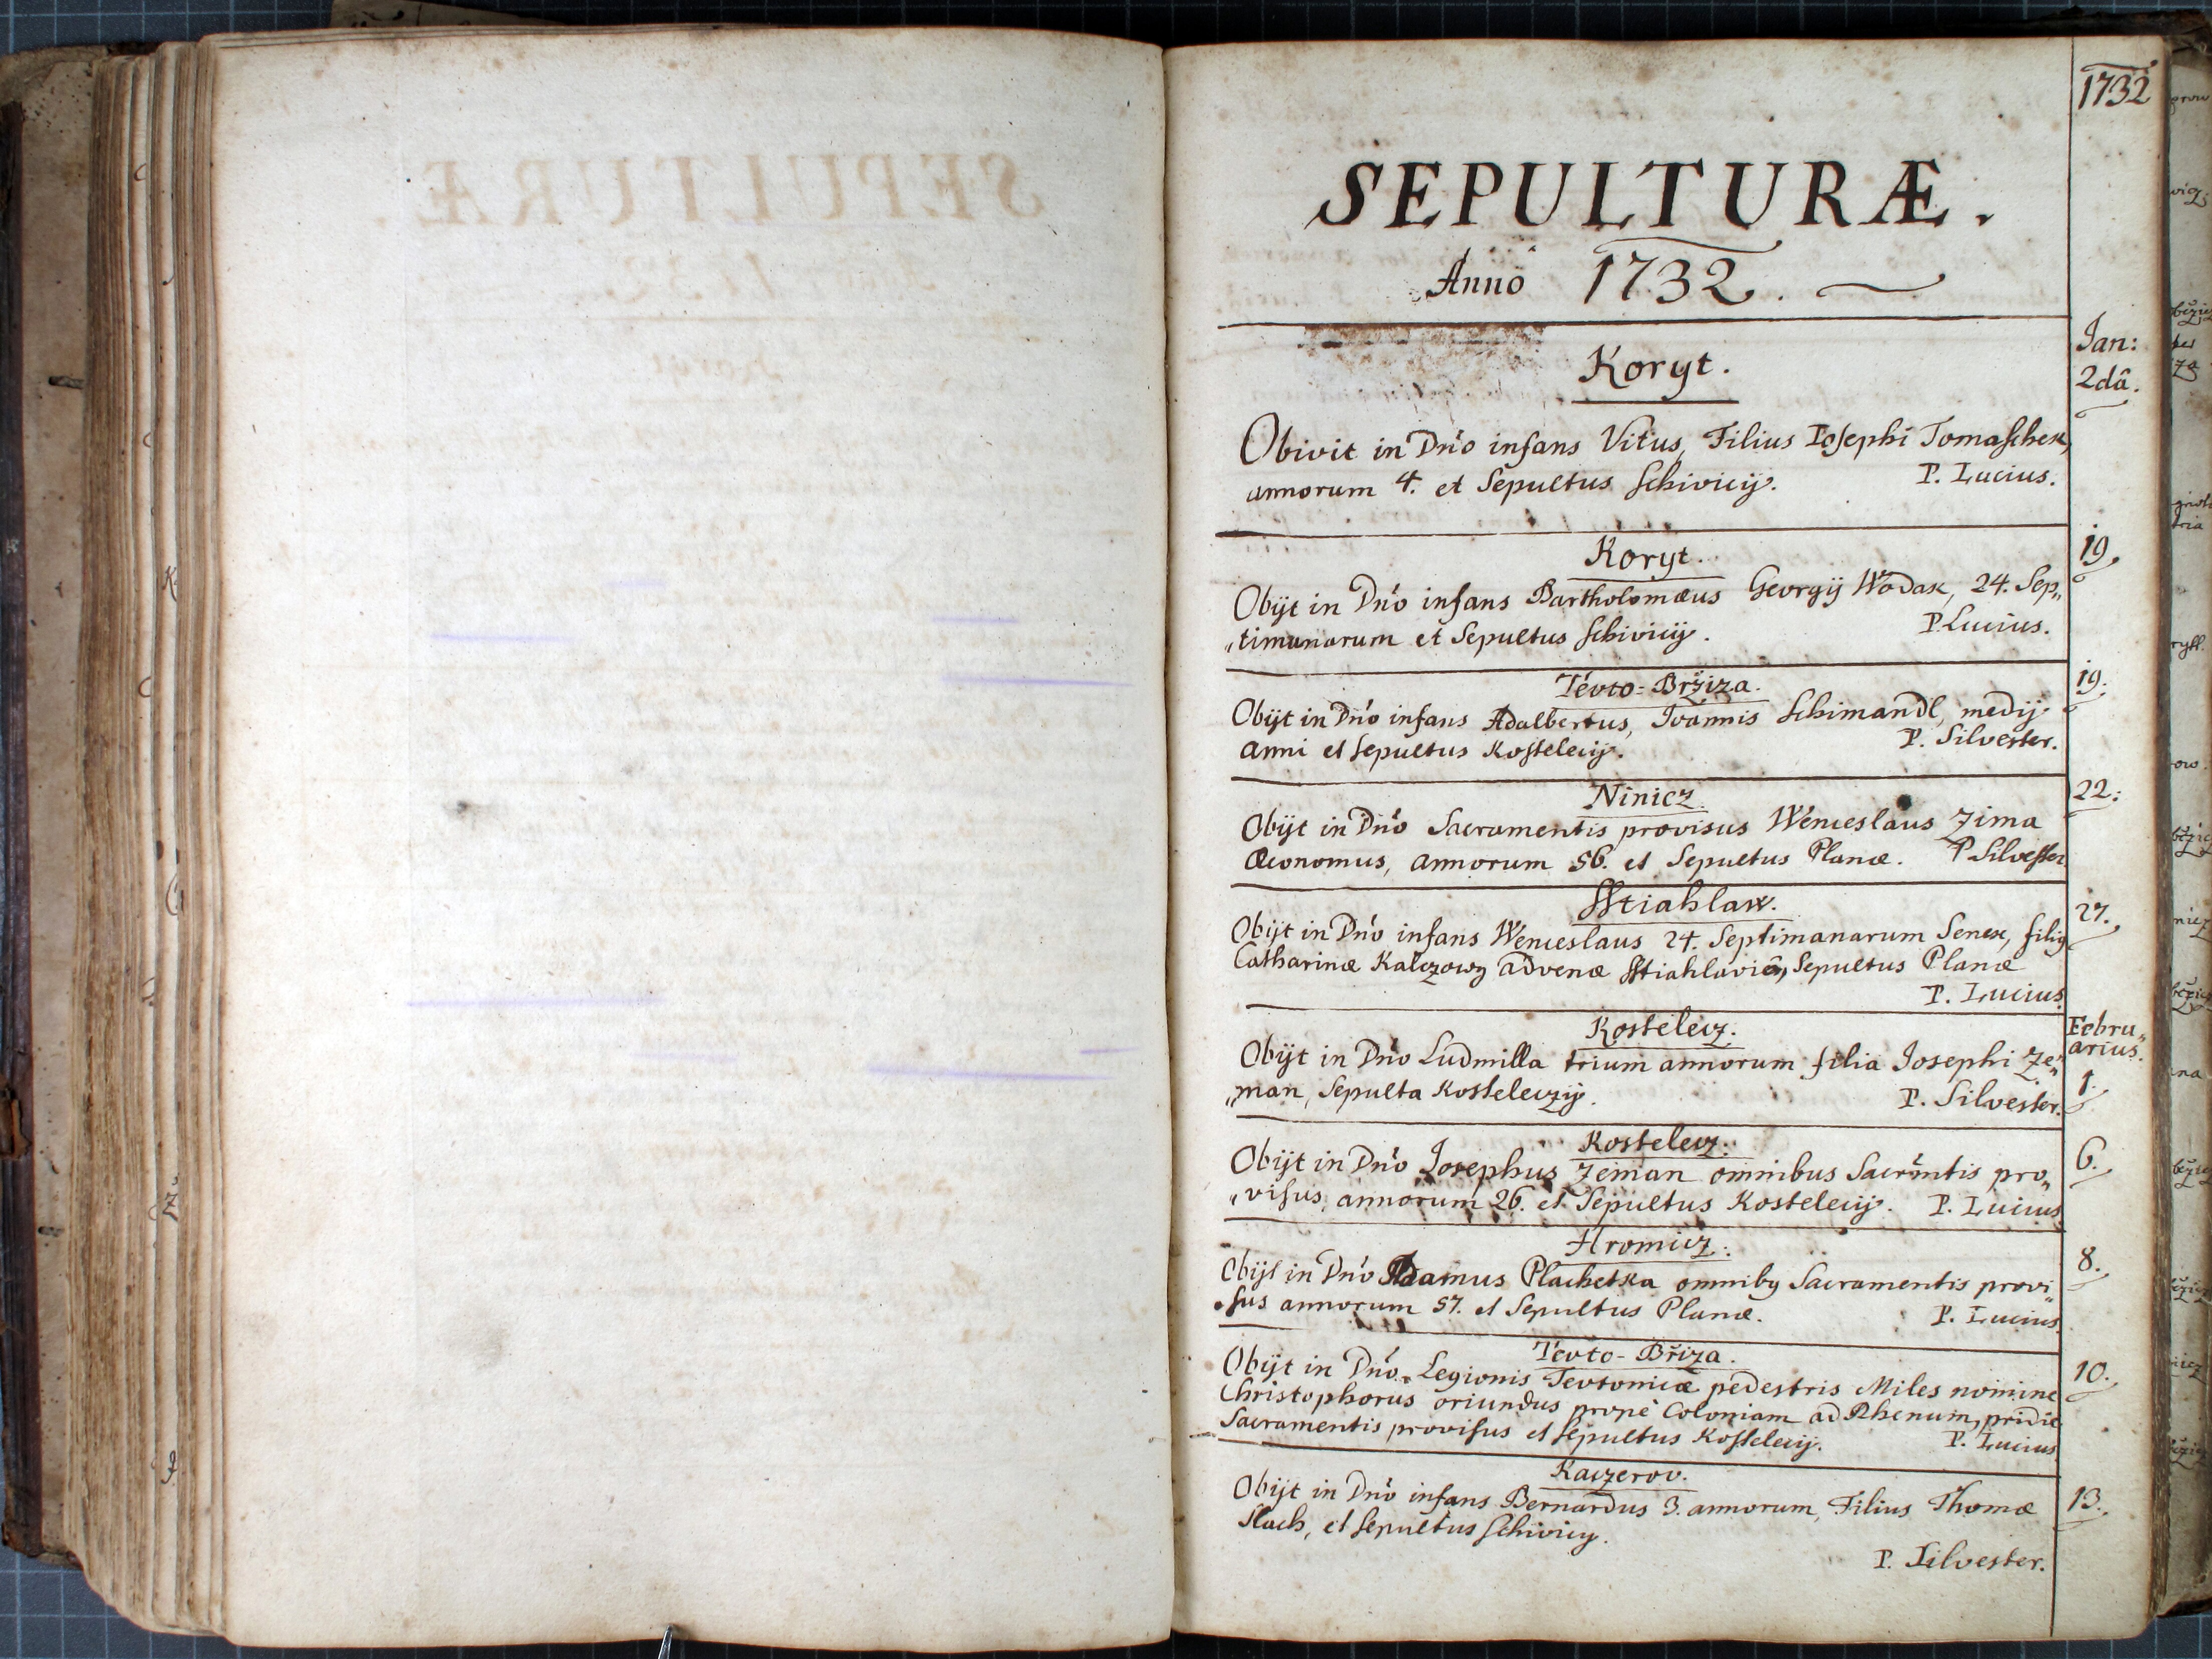 1732
SEPULTURÆ.
Anno 1732.
Jan:
2dâ.
Koryt.
Obivit in Dno infans Vitus, Filius Iosephi Tomaschek,
annorum 4. et Sepultus Schivicij. P. Lucius.
19.
Koryt.
Obijt in Dno infans Bartholomæus Georgij Wodak, 24. Sep„
„timanarum et Sepultus Schivicij. P. Lucius.
19.
Tevto-Bržiza.
Obijt in Dno infans Adalbertus, Ioannis Schimandl, medij
anni et Sepultus Kostelecij. P. Silvester.
22.
Ninicz.
Obijt in Dno Sacramentis provisus Wenceslaus Zima
Œconomus, annorum 56. et Sepultus Planæ. P. Silvester
27.
Sstiahlaw.
Obijt in Dno infans Wenceslaus 24. Septimanarum Senex, filig
Catharinæ Kalczowy advenæ Sstiahlavie, Sepultus Planæ
P. Lucius.
Febru„
arius.
1.
Kostelecz.
Obijt in Dno Ludmilla trium annorum filia Josephi Ze„
„man, Sepulta Kosteleczij. P. Silvester.
6.
Kostelecz.
Obijt in Dno Josephus Zeman omnibus Sacrmntis pro„
„visus, annorum 26. et Sepultus Kostelecij. P. Lucius
8.
Hromicz.
Obijt in Dno Adamus Plachetka omnibg Sacramentis provi„
sus annorum 57. et Sepultus Planæ. P. Lucius.
10.
Tevto-Břiza.
Obijt in Dno Legionis Tevtonicæ pedestris Miles nomine
Christophorus oriundus propè Coloniam ad Rhenum, pridie
Sacramentis provisus et Sepultus Kostelecij. P. Lucius
13.
Kaczerov.
Obijt in Dno infans Bernardus 3. annorum, Filius Thomæ
Slach, et Sepultus Schivicij.
P. Silvester.